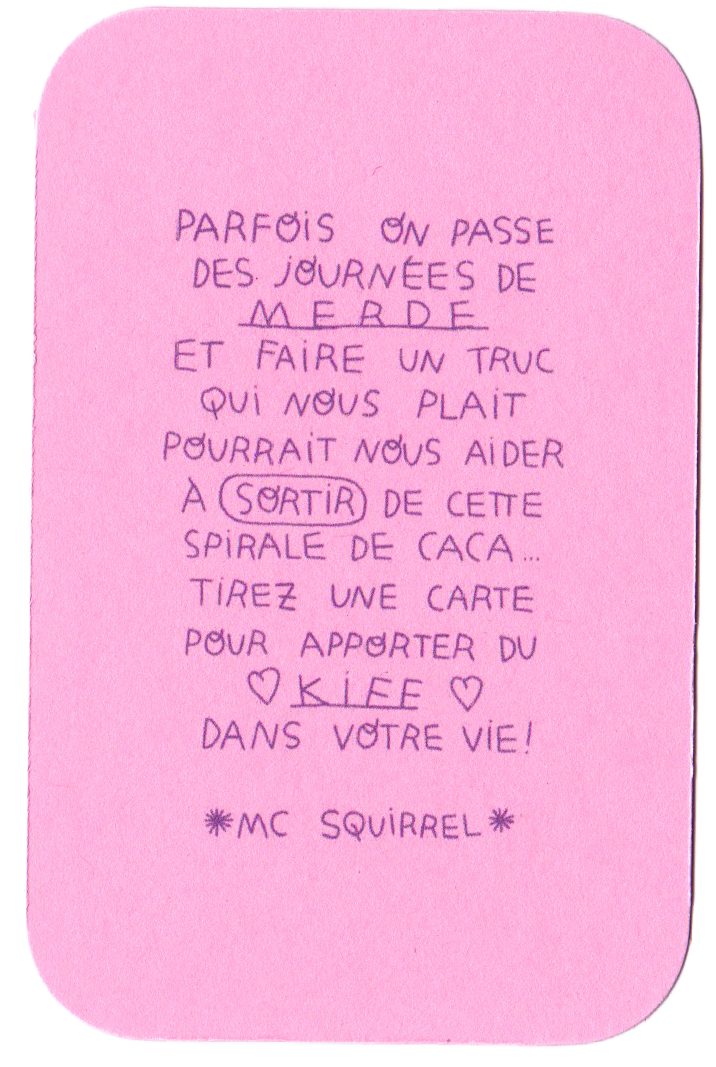 PARFOIS ON PASSE
DES JOURNÉES DE
MERDE
ET FAIRE UN TRUC
QUI NOUS PLAIT
POURRAIT NOUS AIDER
À SORTIR DE CETTE
SPIRALE DE CACA...
TIREZ UNE CARTE
POUR APPORTER DU
♡ KIFF ♡
DANS VOTRE VIE!
*MC SQUIRREL*